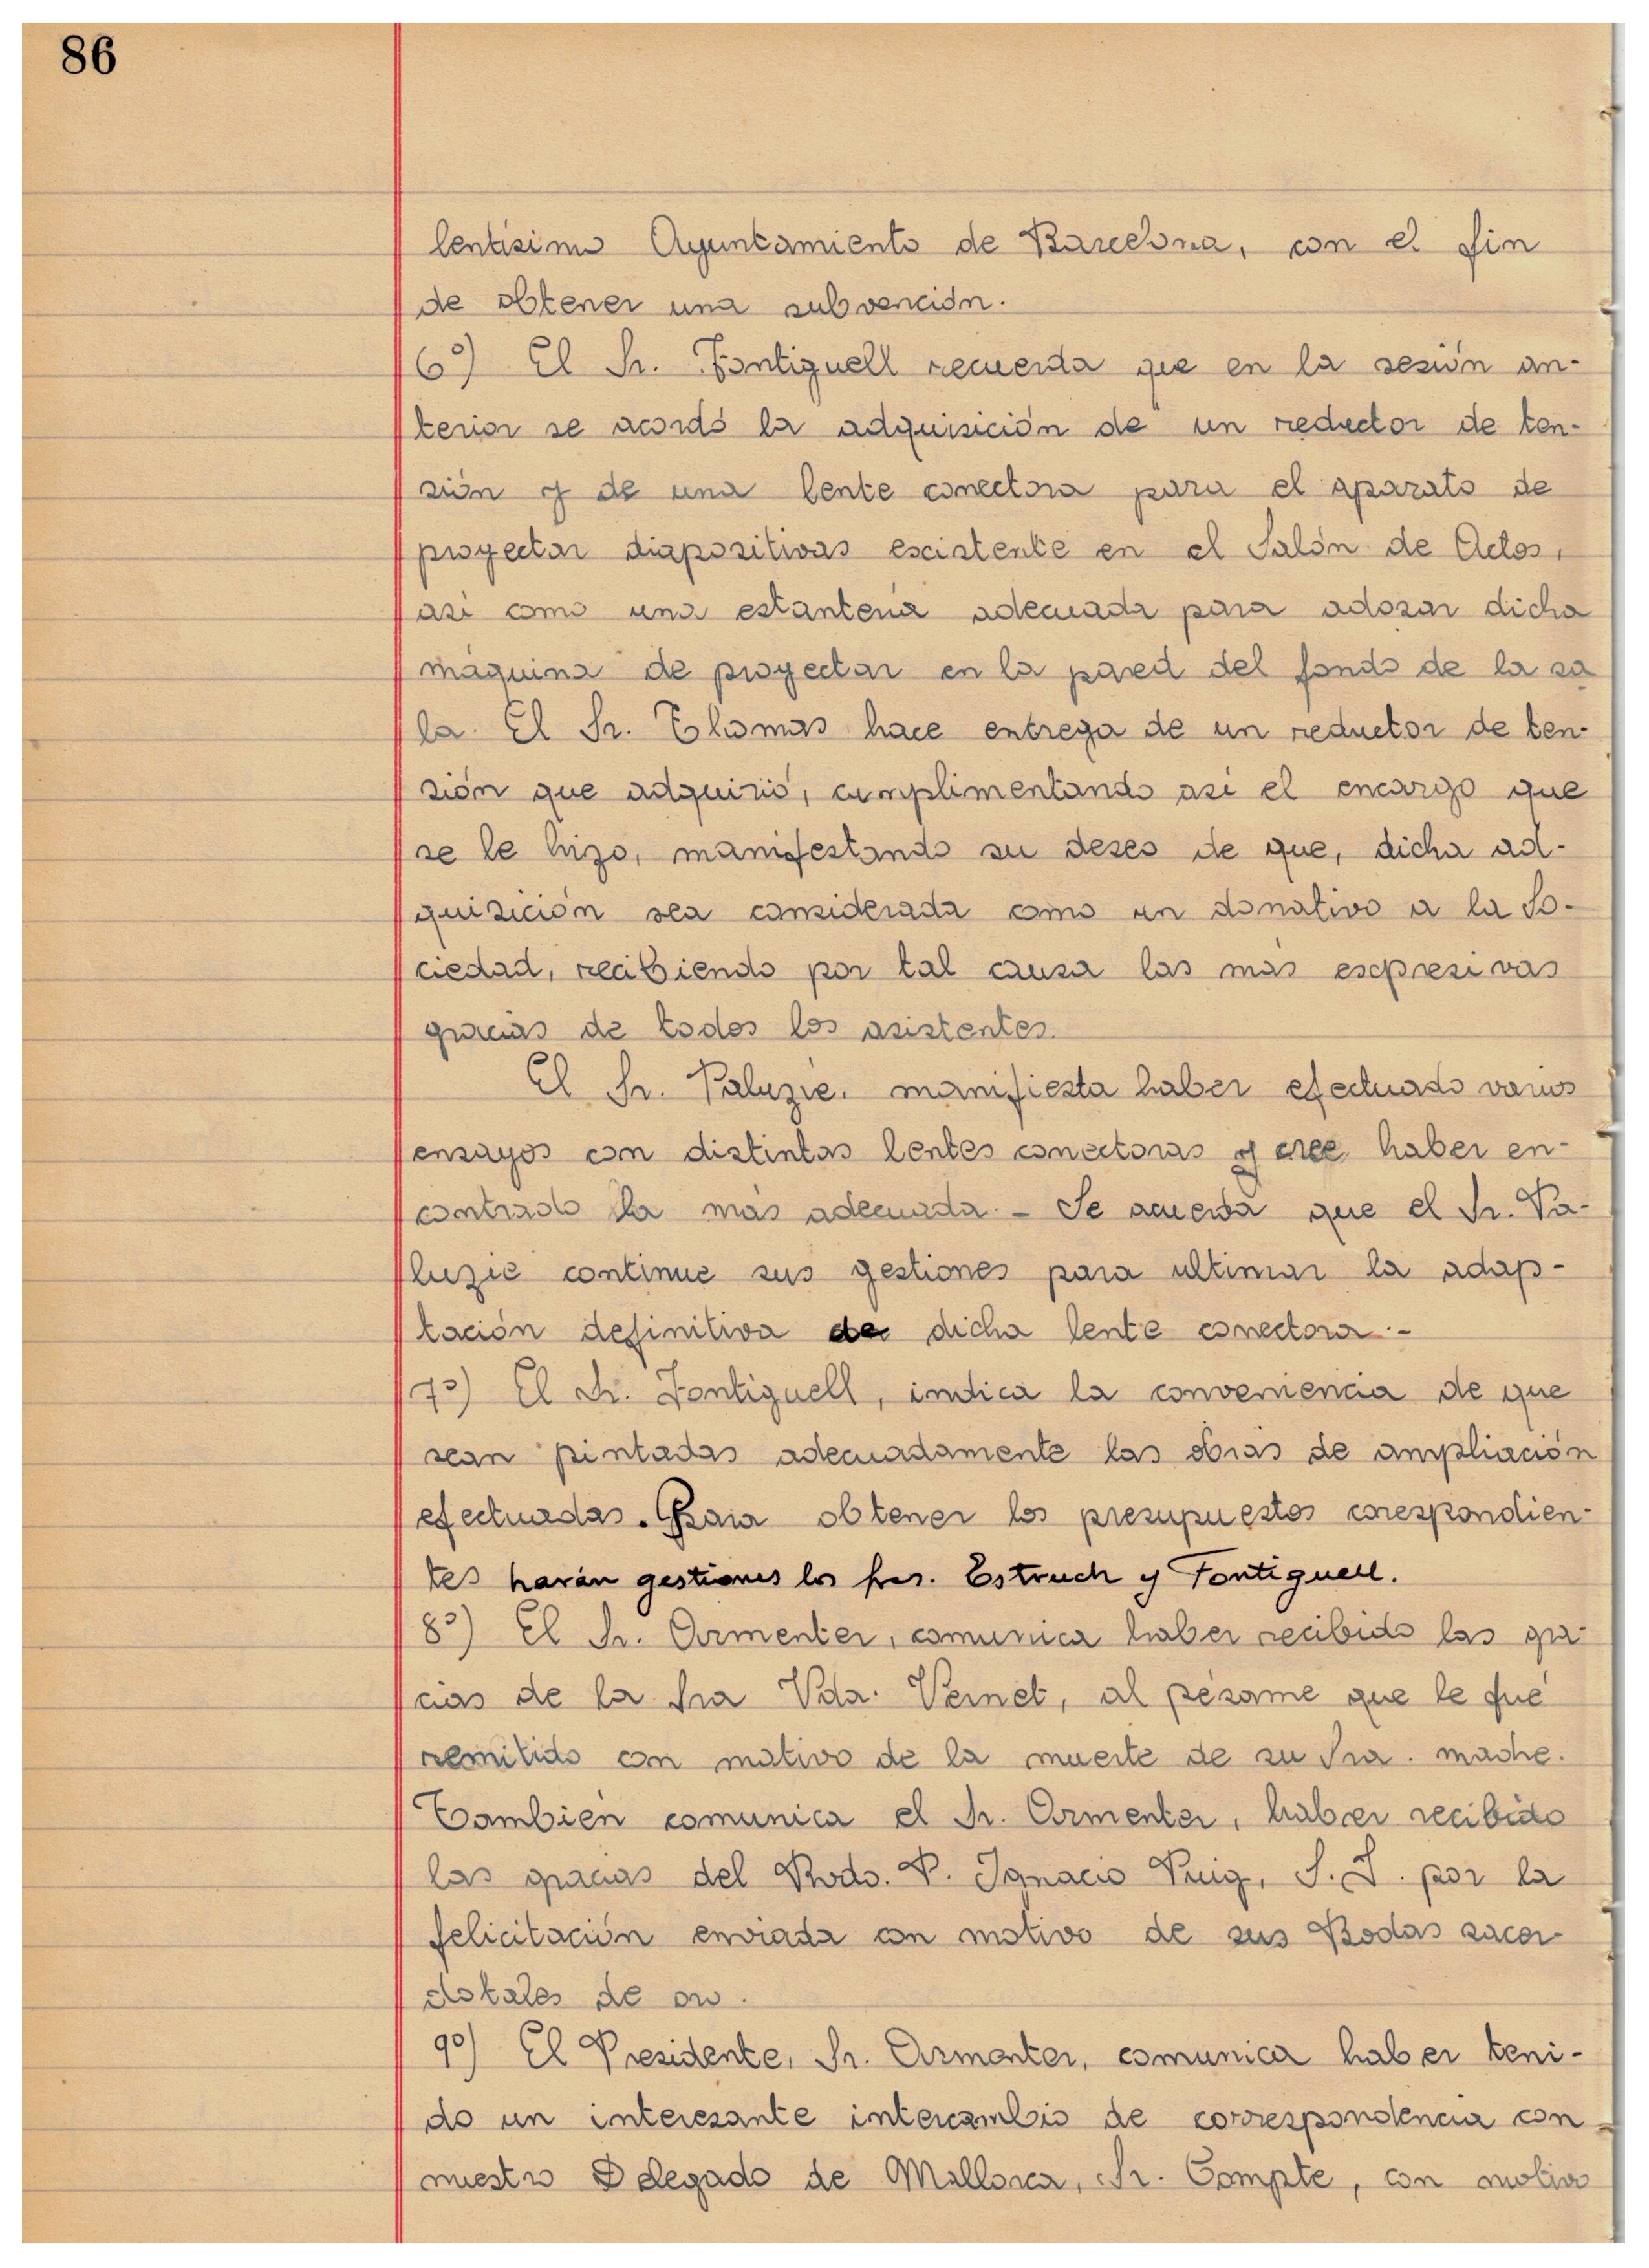 86
lentísimo Ayuntamiento de Barcelona, con el fin
de obtener una subvención.
6º) El Sr. Fontiguell recuerda que en la sesión an-
terior se acordó la adquisición de un reductor de ten-
sión y de una lente corectora para el aparato de
proyectar diapositivas existente en el Salón de Actos,
así como una estantería adecuada para adosar dicha
máquina de proyectar en la pared del fondo de la sa
la. El Sr. Thomas hace entrega de un reductor de ten-
sión que adquirió, cumplimentando así el encargo que
se le hizo, manifestando su deseo de que, dicha ad-
quisición sea considerada como un donativo a la So-
ciedad, recibiendo por tal causa las más expresivas
gracias de todos los asistentes.
El Sr. Paluzíe. manifiesta haber efectuado varios
ensayos con distintas lentes corectoras y cree haber en-
contrado la más adecuada. - Se acuerda que el Sr. Pa-
luzíe continue sus gestiones para ultimar la adap-
tación definitiva de dicha lente corectora. -
7º) El Sr. Fontiguell, indica la conveniencia de que
sean pintadas adecuadamente las obras de ampliación
efectuadas. Para obtener los presupuestos corespondien-
tes harán gestiones los Sres. Estruch y Fontiguell.
8º) El Sr. Armenter, comunica haber recibido las gra-
cias de la Sra Vda. Vernet, al pésame que le fué
remitido con motivo de la muerte de su Sra. madre.
También comunica el Sr. Armenter, haber recibido
las gracias del Rvdo. P. Ignacio Puig, S. J. por la
felicitación enviada con motivo de sus Bodas sacer-
dotales de oro.
9º) El Presidente, Sr. Armenter, comunica haber teni-
do un interesante intercambio de correspondencia con
nuestro Delegado de Mallorca, Sr. Compte, con motivo